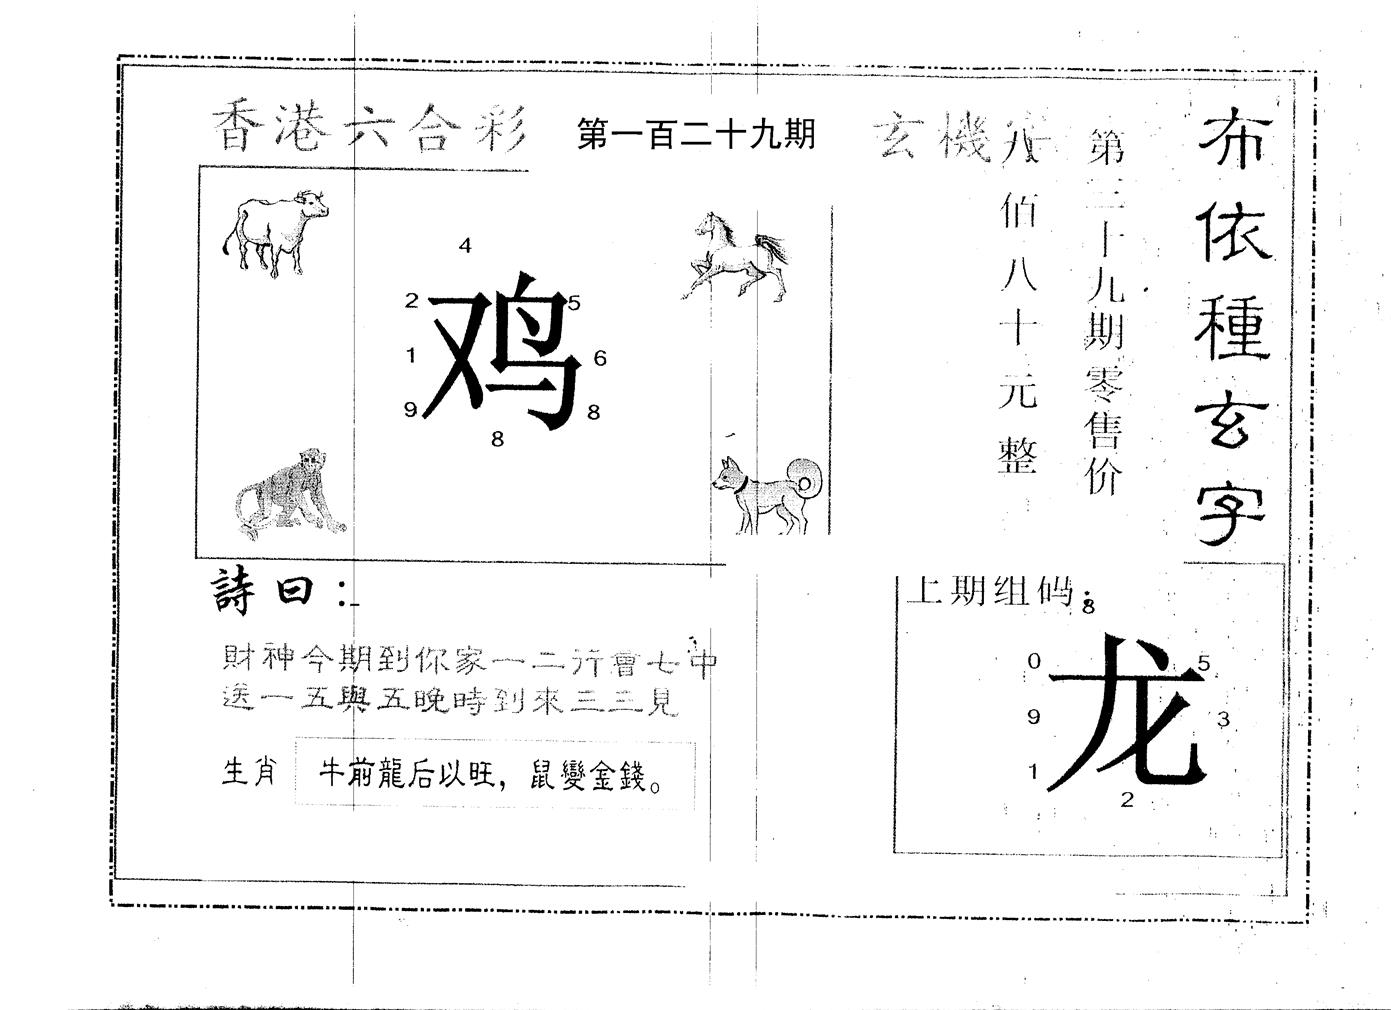 香港六合彩 第一百二十九期 玄機
布依種玄字
第三十九期零售价
八佰八十元整
4
2 鸡 5
1 6
9 8
8
詩曰：
財神今期到你家一二行會七中
送一五與五晚時到來三三見
生肖 牛前龍后以旺，鼠變金錢。
上期组码：
8
0 龙 5
9 3
1
2